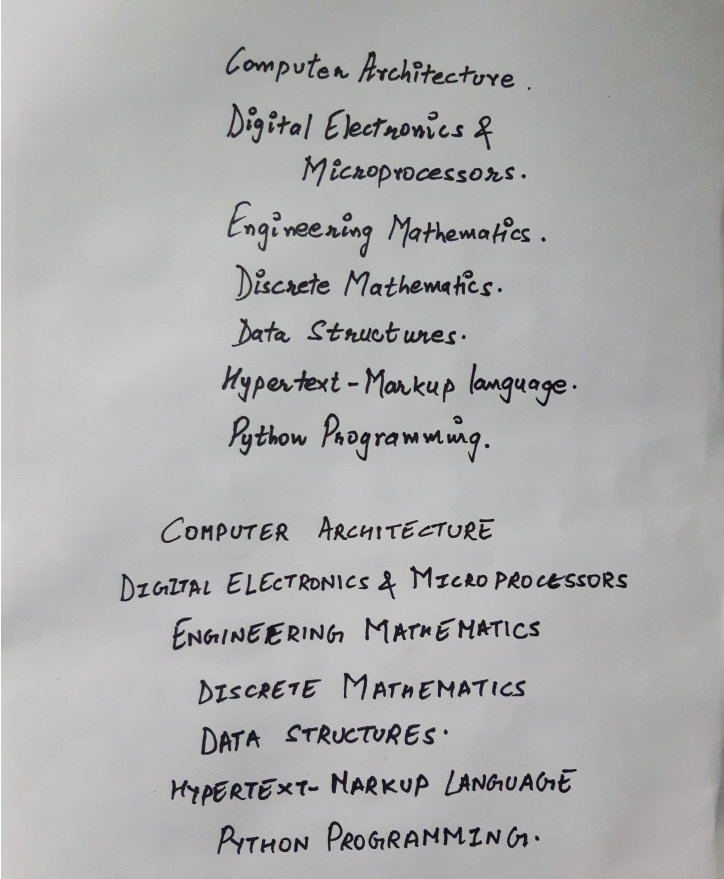 Computer Architecture.
Digital Electronics &
Microprocessors.
Engineering Mathematics.
Discrete Mathematics.
Data Structures.
Hypertext-Markup language.
Python Programming.
COMPUTER ARCHITECTURE
DIGITAL ELECTRONICS & MICROPROCESSORS
ENGINEERING MATHEMATICS
DISCRETE MATHEMATICS
DATA STRUCTURES.
HYPERTEXT-MARKUP LANGUAGE
PYTHON PROGRAMMING.